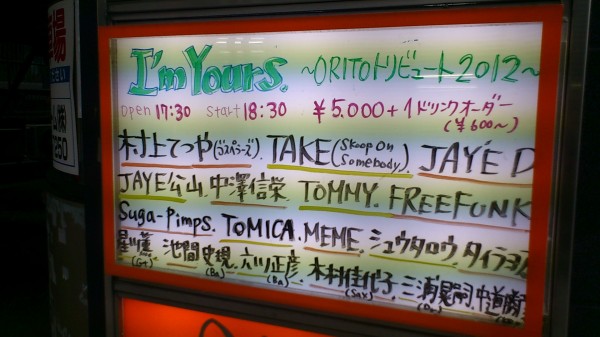 I'm Yours. ~ORITOトリビュート2012~
open 17:30 start 18:30 ¥5.000+1ドリンクオーダー
(¥600~)
村上てつや(ゴスペラーズ). TAKE(Skoop On Somebody). JAYE D
JAYE公山. 中澤信栄. TOMMY. FREEFUNK
Suga-Pimps. TOMICA. MEME. シュウタロウ. タイラヨ
(Gt) 池間史規(Ba). 六川正彦(Ba) 木村佳代子(Sax). 三浦晃嗣(Dr). 中道勝
場
250